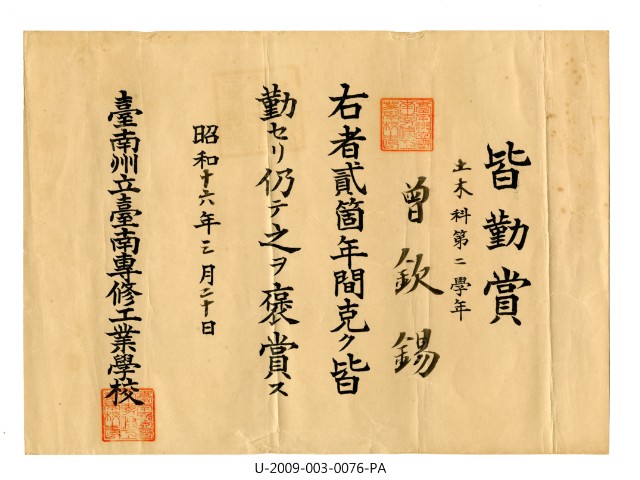 皆勤賞
土木科第二學年
曾欽錫
右者貳箇年間克ク皆
勤セリ仍テ之ヲ褒賞ス
昭和十六年三月二十日
臺南州立臺南專修工業學校
U-2009-003-0076-PA